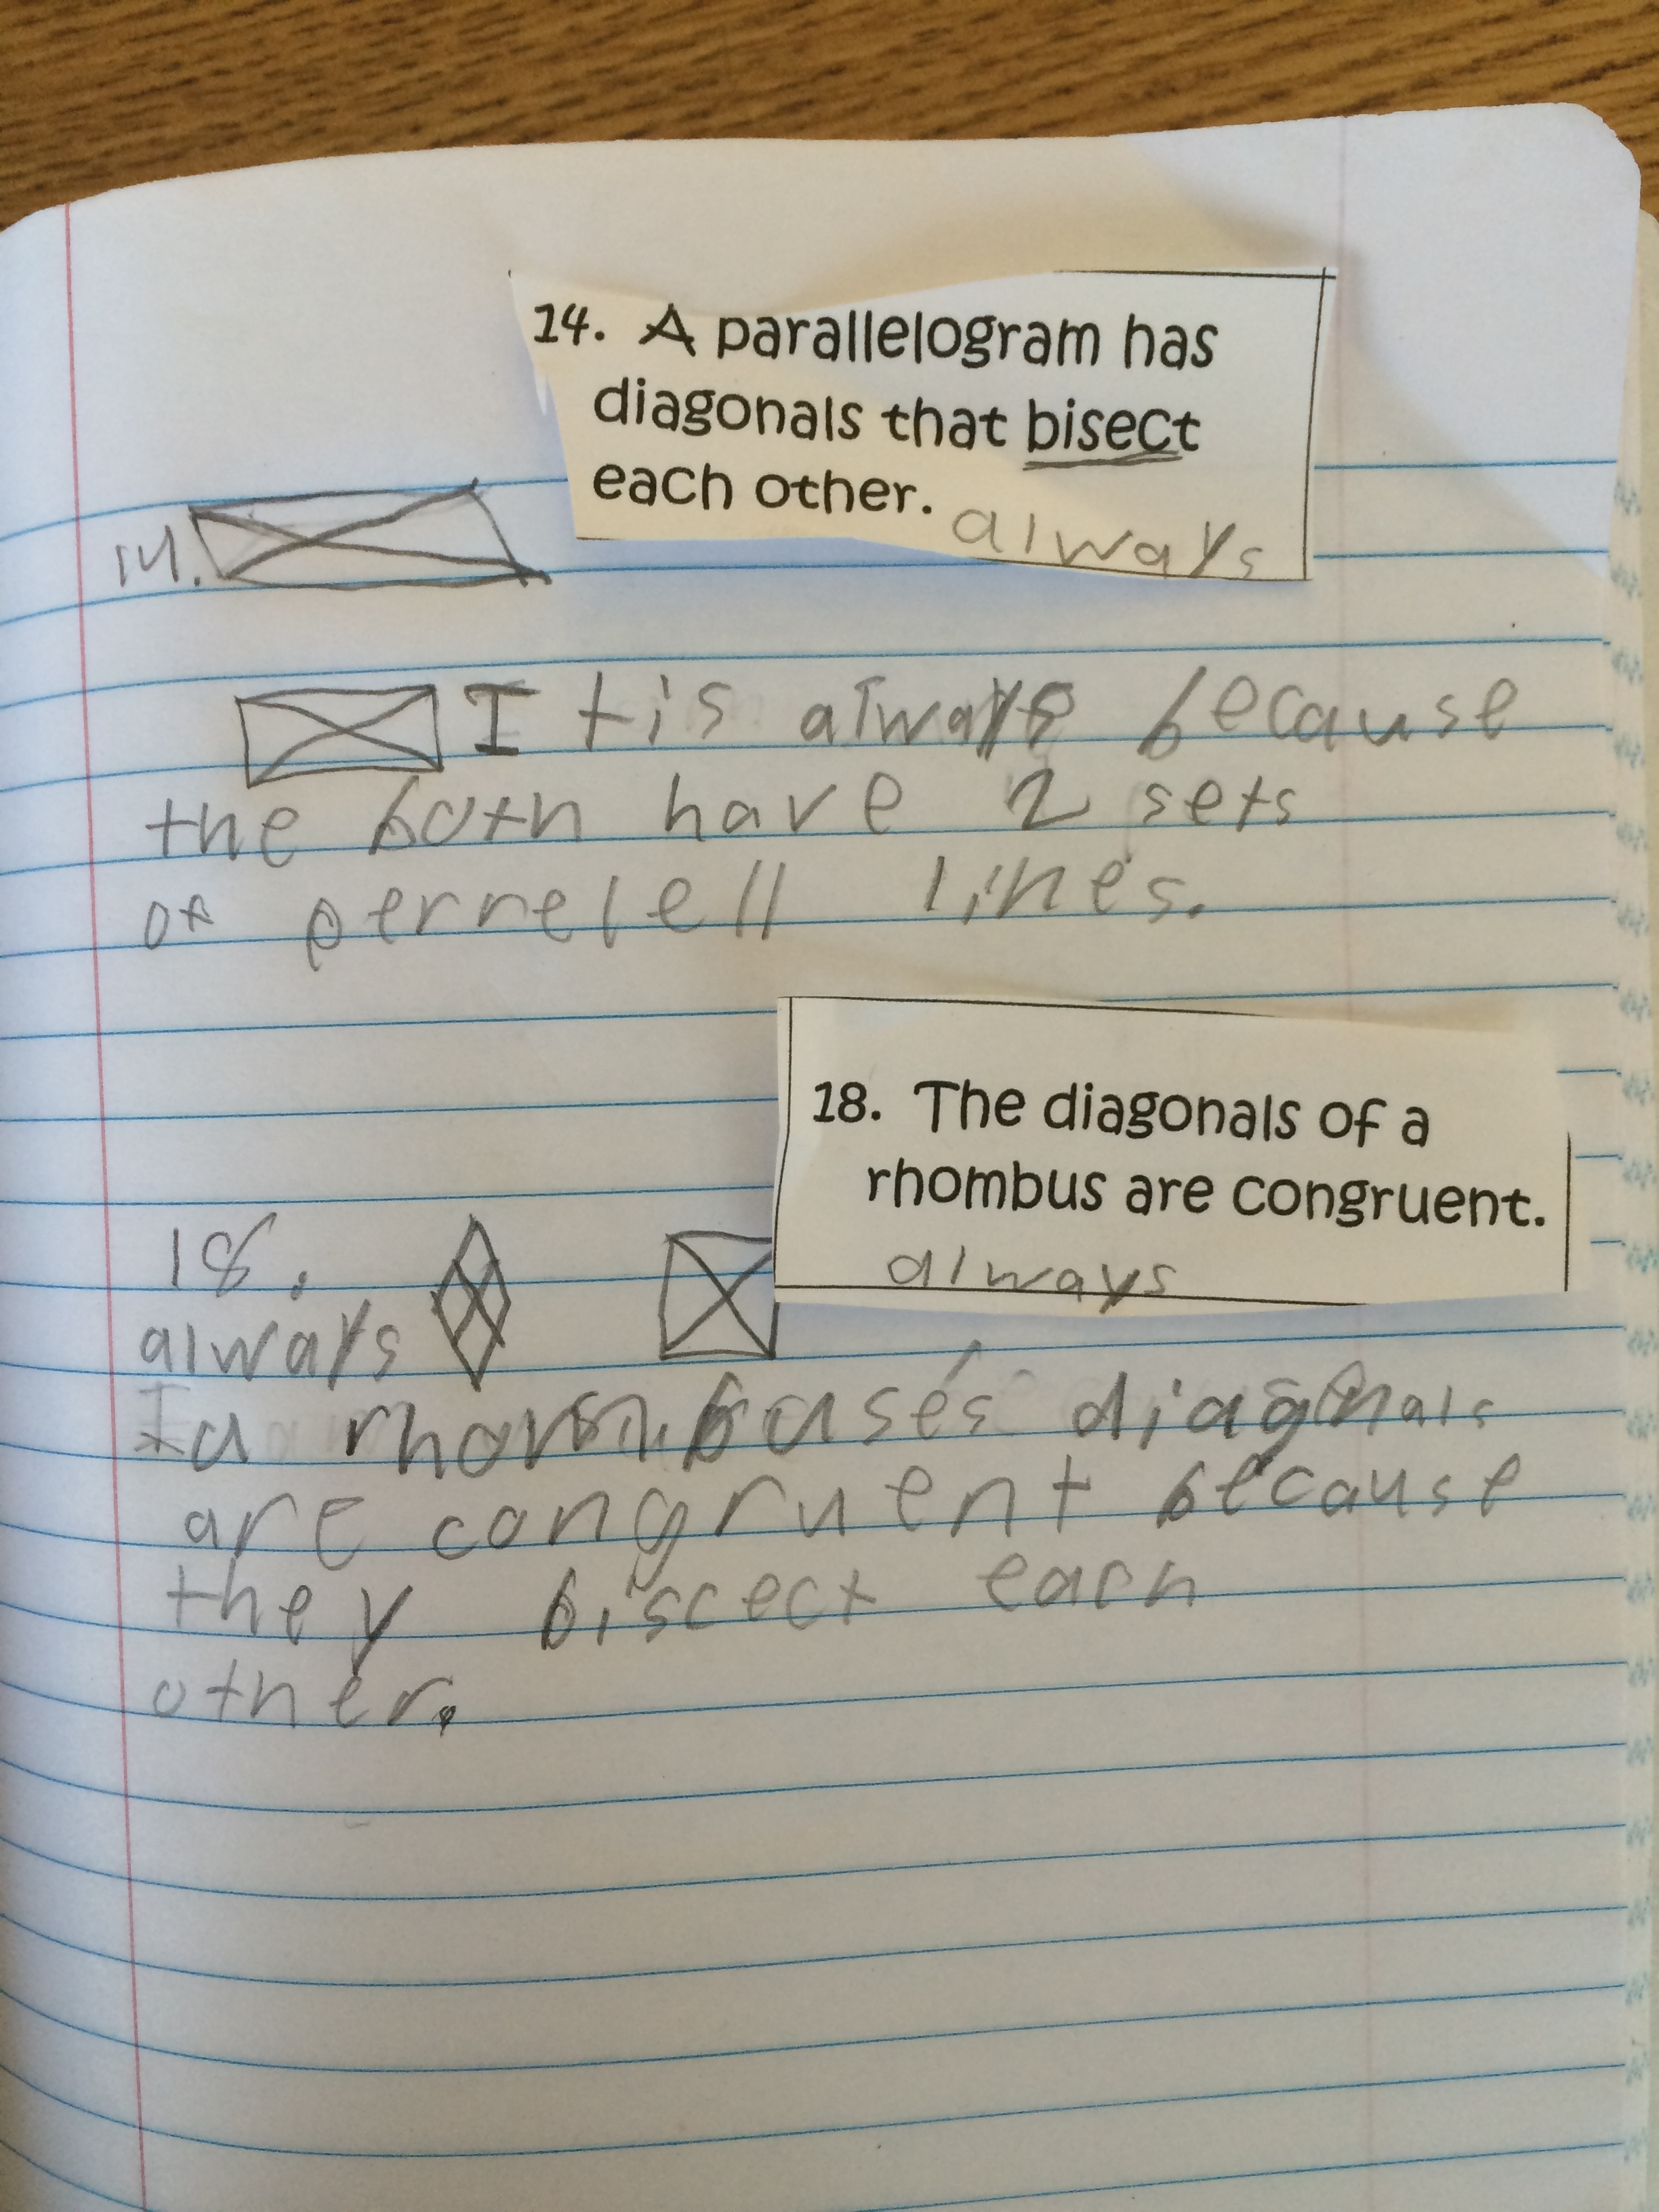 14. A parallelogram has
diagonals that bisect
each other.
always
14.
It is always because
the both have 2 sets
of perrelell lines.
18. The diagonals of a
rhombus are congruent.
always
18.
always
a diagonals
are congruent because
they biscect each
other.